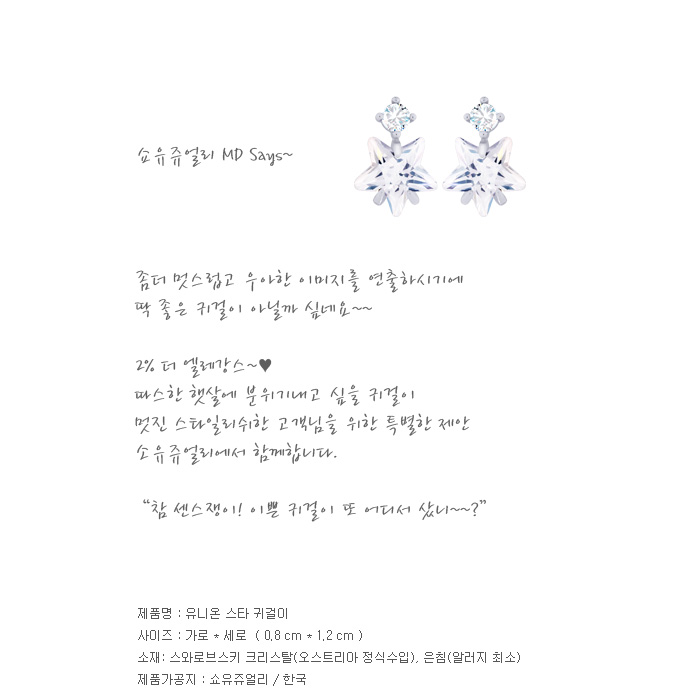 쇼유쥬얼리 MD Says~
좀더 멋스럽고 우아한 이미지를 연출하시기에
딱 좋은 귀걸이 아닐까 싶네요~~
2% 더 엘레강스~♥
따스한 햇살에 분위기내고 싶을 귀걸이
멋진 스타일리쉬한 고객님을 위한 특별한 제안
쇼유쥬얼리에서 함께합니다.
“참 센스쟁이! 이쁜 귀걸이 또 어디서 샀니~~?”
제품명 : 유니온 스타 귀걸이
사이즈 : 가로 * 세로 ( 0,8 cm * 1,2 cm )
소재: 스와로브스키 크리스탈(오스트리아 정식수입), 은침(알러지 최소)
제품가공지 : 쇼유쥬얼리 / 한국